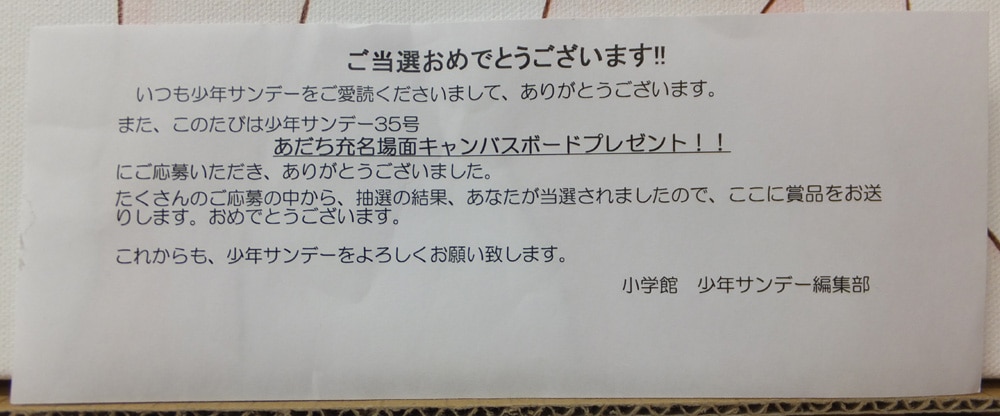 ご当選おめでとうございます!!
いつも少年サンデーをご愛読くださいまして、ありがとうございます。
また、このたびは少年サンデー35号
あだち充名場面キャンバスボードプレゼント！！
にご応募いただき、ありがとうございました。
たくさんのご応募の中から、抽選の結果、あなたが当選されましたので、ここに賞品をお送
りします。おめでとうございます。
これからも、少年サンデーをよろしくお願い致します。
小学館　少年サンデー編集部